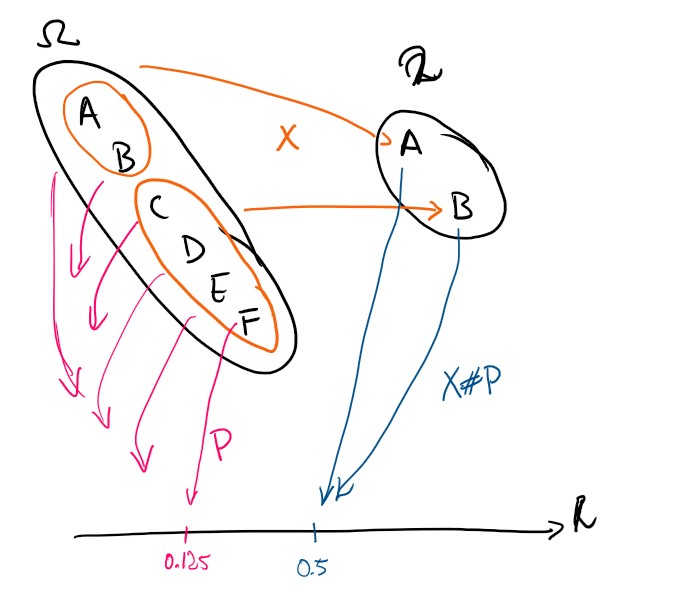 Ω
A
B
C
D
E
F
X
A
B
X#P
P
R
0.125
0.5